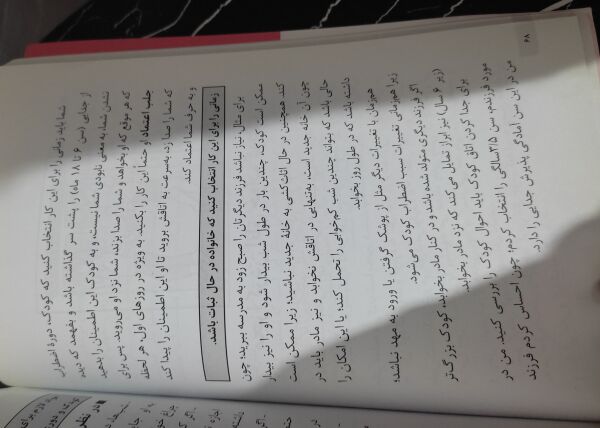 ۶۸
شما باید زمانی را برای این کار انتخاب کنید که کودک، دورهٔ اضطراب
از جدایی (بین ۶ تا ۱۸ ماه) را پشت سر گذاشته باشد و بفهمد که دیده
نشدن شما، به معنی نابودی شما نیست، و به کودک این اطمینان را بدهید
که هر موقع که او بخواهد و شما را صدا بزند، شما نزد او می‌روید. پس برای
جلب اعتماد او حتماً این کار را بکنید. به ویژه در روزهای اول، هر لحظه
که شما را صدا زد، به‌سرعت به اتاقش بروید تا او این اطمینان را پیدا کند
و به حرف شما اعتماد کند.
زمانی را برای این کار انتخاب کنید که خانواده در حال ثبات باشد.
برای مثال، نیاز نباشد فرزند دیگرتان را صبح زود به مدرسه ببرید؛ چون
ممکن است کودک، چندین بار در طول شب بیدار شود و او را نیز بیدار
کند. همچنین در حال اثاث‌کشی به خانهٔ جدید نباشید؛ زیرا ممکن است
چون آن خانه جدید است، به‌تنهایی در اتاقش نخوابد و نیز مادر باید در
حالی باشد که بتواند چندین شب کم‌خوابی را تحمل کند، یا این امکان را
داشته باشد که در طول روز بخوابد.
هم‌زمان با تغییرات دیگر مثل از پوشک گرفتن یا ورود به مهد نباشد؛
زیرا هم‌زمانی تغییرات سبب اضطراب کودک می‌شود.
اگر فرزند دیگری متولد شده باشد و در کنار مادر بخوابد، کودک بزرگ‌تر
(زیر ۶ سال) نیز ابراز تمایل می‌کند که نزد مادر بخوابد.
برای جدا کردن اتاق کودک باید احوال کودک را بررسی کنید. من در
مورد فرزندم، سن ۳/۵سالگی را انتخاب کردم، چون احساس کردم فرزند
من در این سن آمادگی پذیرش جدایی را دارد.